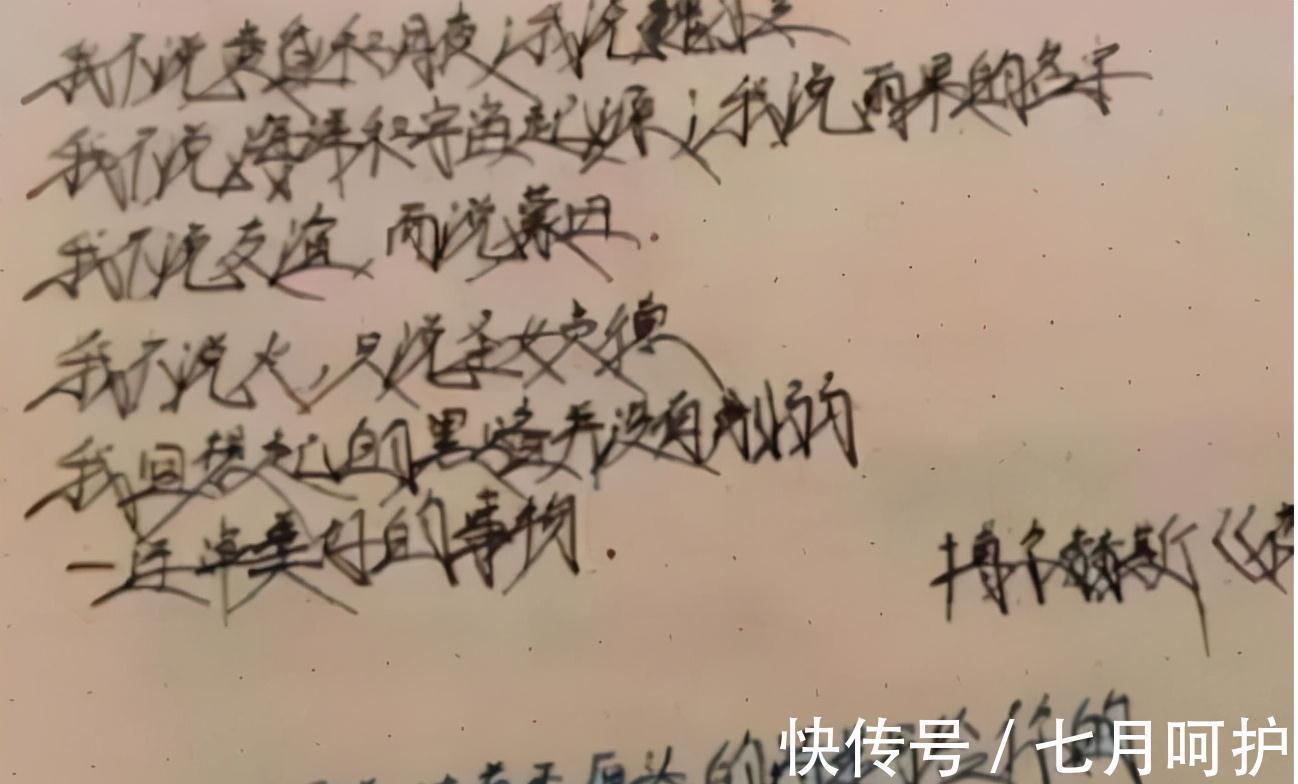 我不说黄莺和月夜；我说魏
我不说海洋和宇宙起源；我说雨果的名子
我不说友谊，而说蒙田.
我不说火，只说圣女贞德
我回想起的黑暗并没有削弱的
一连串美好的事物.
博尔赫斯《
快传号 / 七月呵护